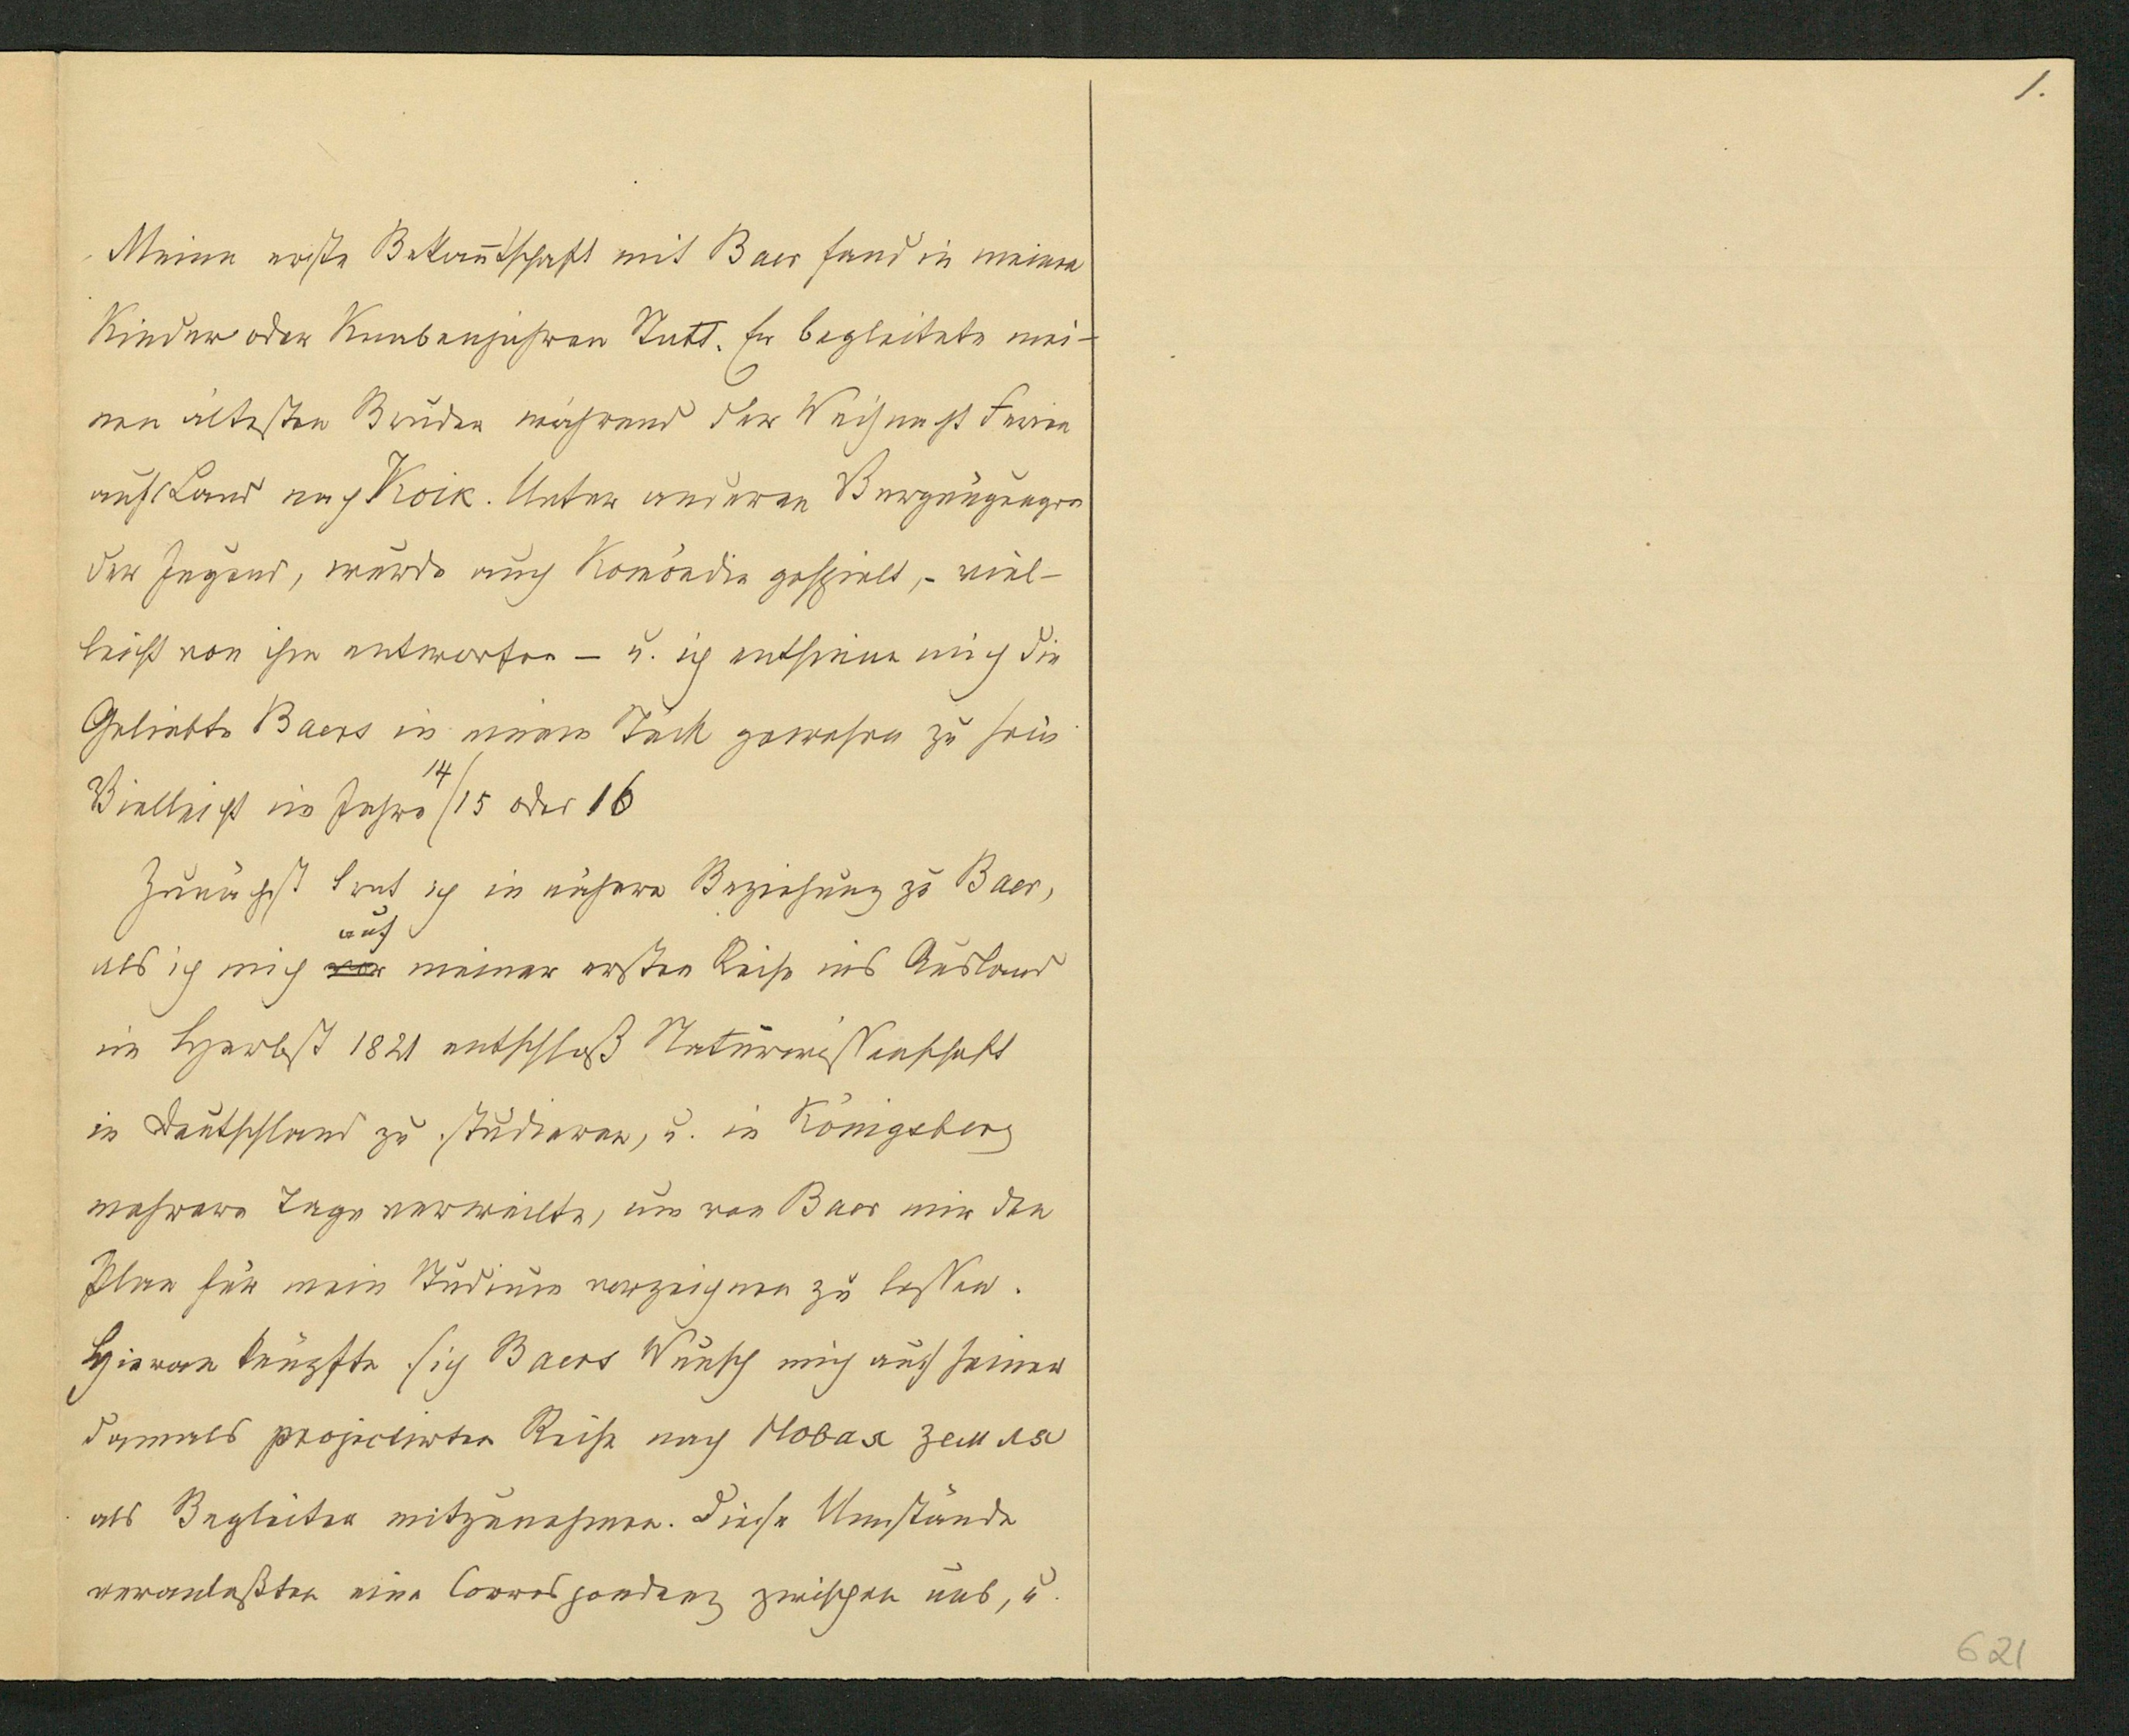 1.
Meine erste Bekan̄tschaft mit Baer fand in meinen
Kinder oder Knabenjahren Statt. Er begleitete mei-
nen ältesten Bruder während der Weihnacht Ferien
aufs Land nach Koik. Unter anderen Vergnügungen
der Jugend, wurde auch Komöedie gespielt, - viel-
leicht von ihm entworfen - u. ich entsinne mich die
Geliebte Baers in einem Stück gewesen zu sein
Vielleicht im Jahre 14/15 oder 16
Zunächst trat ich in nähere Beziehung zu Baer,
auf
als ich mich vor meiner ersten Reise ins Ausland
im Herbst 1821 entschloß Naturwissenschaft
in Deutschland zu studieren, u. in Königsberg
mehrere Tage verweilte, um von Baer mir den
Plan für mein Studium vorzeichnen zu lassen.
Hieran knüpfte sich Baers Wunsch mich auf seiner
damals projectirten Reise nach Новая земля
als Begleiter mitzunehmen. Diese Umstände
veranlaßten eine Correspondenz zwischen uns, u.
621